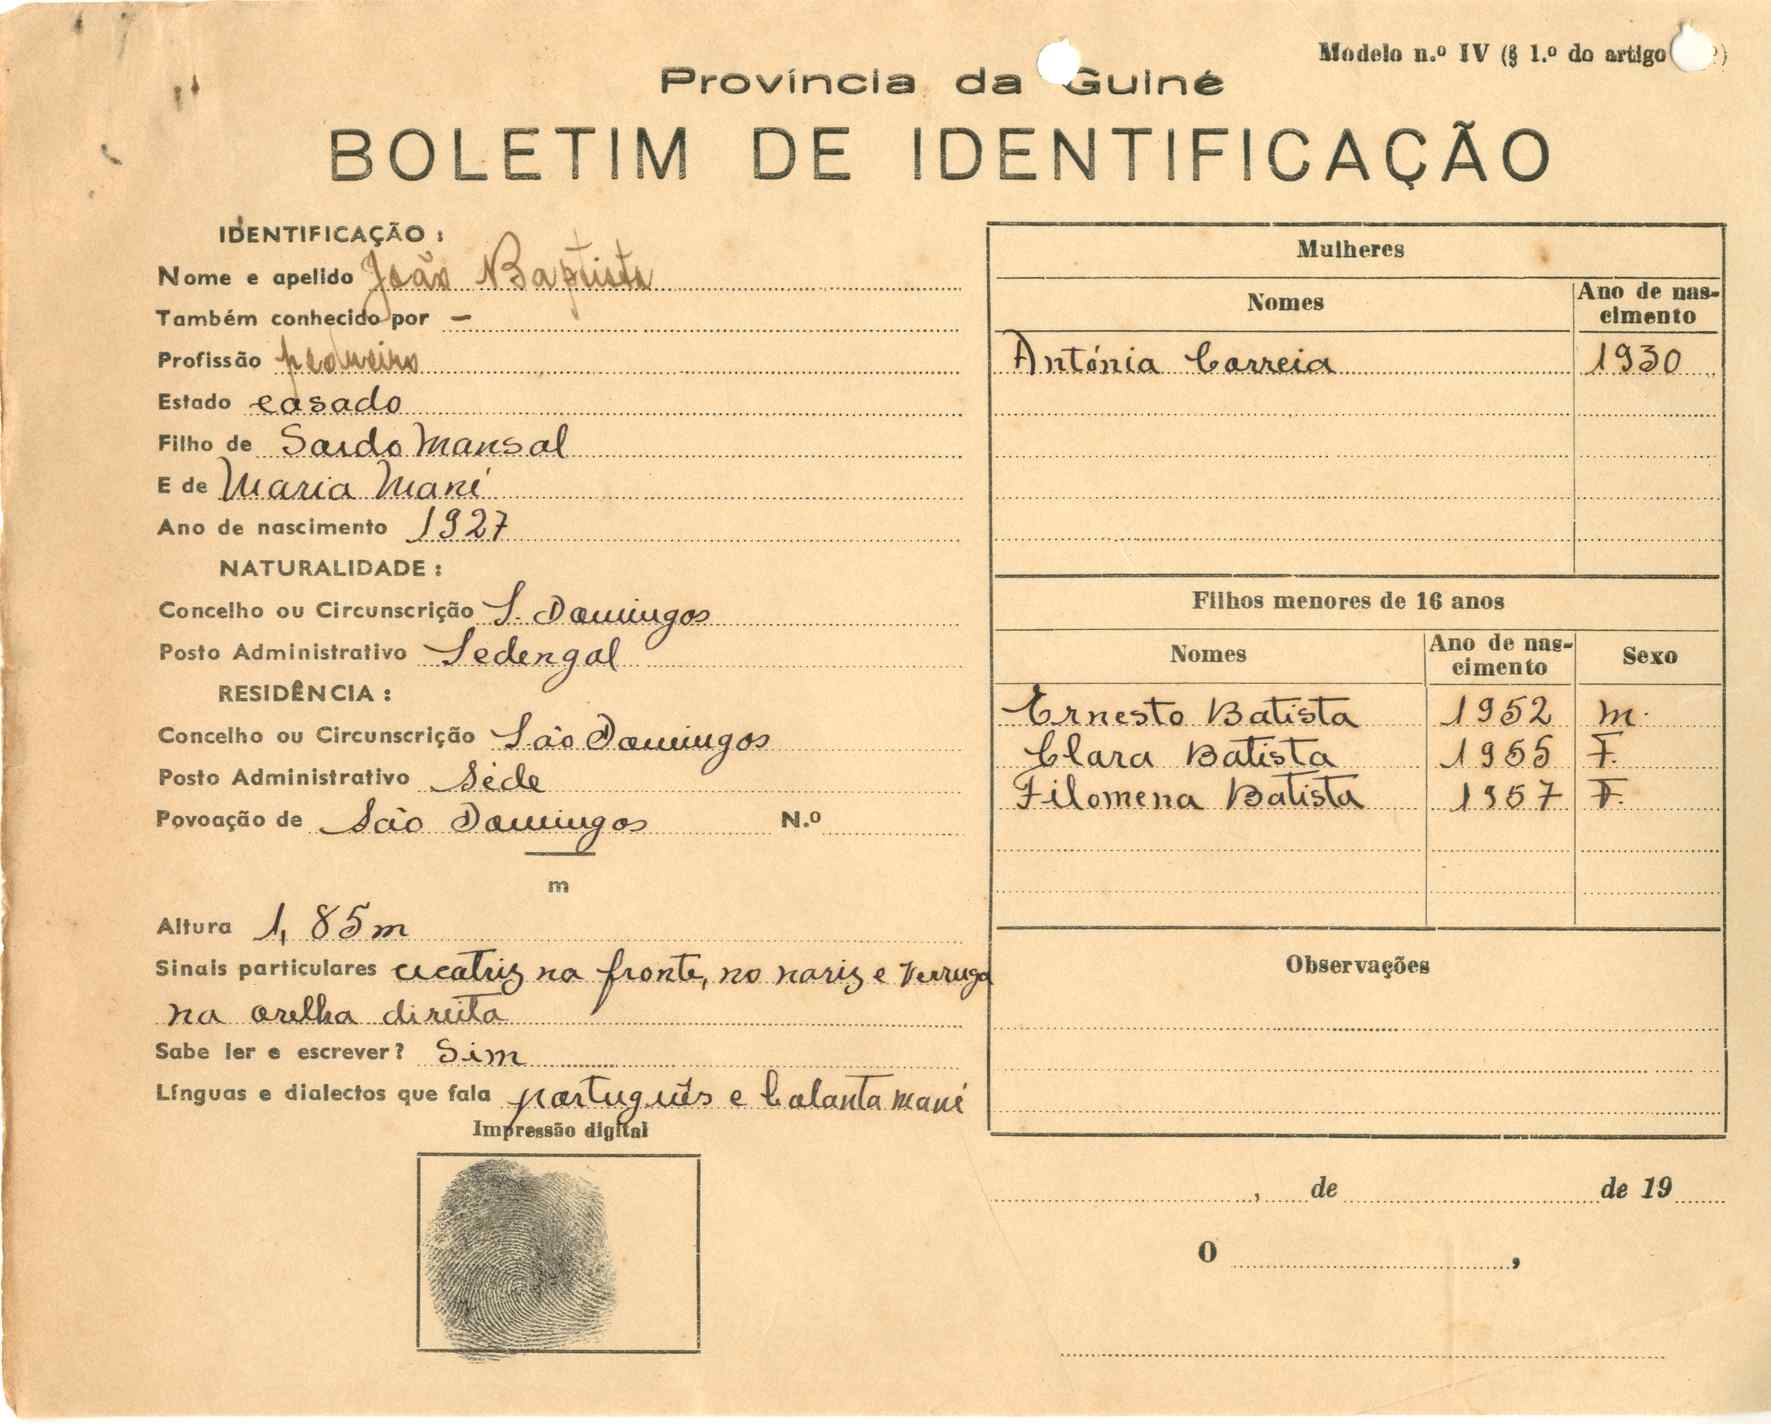 Modelo n.º IV (§ 1.º do artigo
Província da Guiné
BOLETIM DE IDENTIFICAÇÃO
IDENTIFICAÇÃO :
Nome e apelido João Baptista
Também conhecido por —
Profissão pedreiro
Estado casado
Filho de Saido Mansal
E de Maria Mané
Ano de nascimento 1927
NATURALIDADE :
Concelho ou Circunscrição S. Domingos
Posto Administrativo Sedengal
RESIDÊNCIA :
Concelho ou Circunscrição São Domingos
Posto Administrativo Séde
Povoação de São Domingos N.º
m
Altura 1,85m
Sinais particulares cicatriz na fronte, no nariz e verruga
na orelha direita
Sabe ler e escrever? Sim
Línguas e dialectos que fala português e balanta mané
Impressão digital
Mulheres
Nomes Ano de nas-
cimento
Antónia Correia 1930
Filhos menores de 16 anos
Nomes Ano de nas-
cimento Sexo
Ernesto Batista 1952 m.
Clara Batista 1955 F.
Filomena Batista 1957 F.
Observações
, de de 19
O ,